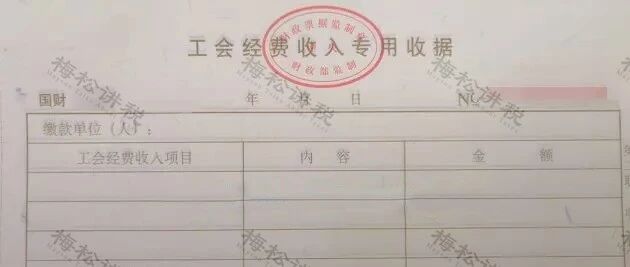 工会经费收入专用收据
财政票据监制章
财政部监制
国财 年 月 日 NO
缴款单位(人):
工会经费收入项目 内 容 金 额
梅松讲税
梅松讲税
梅松讲税
梅松讲税
梅松讲税